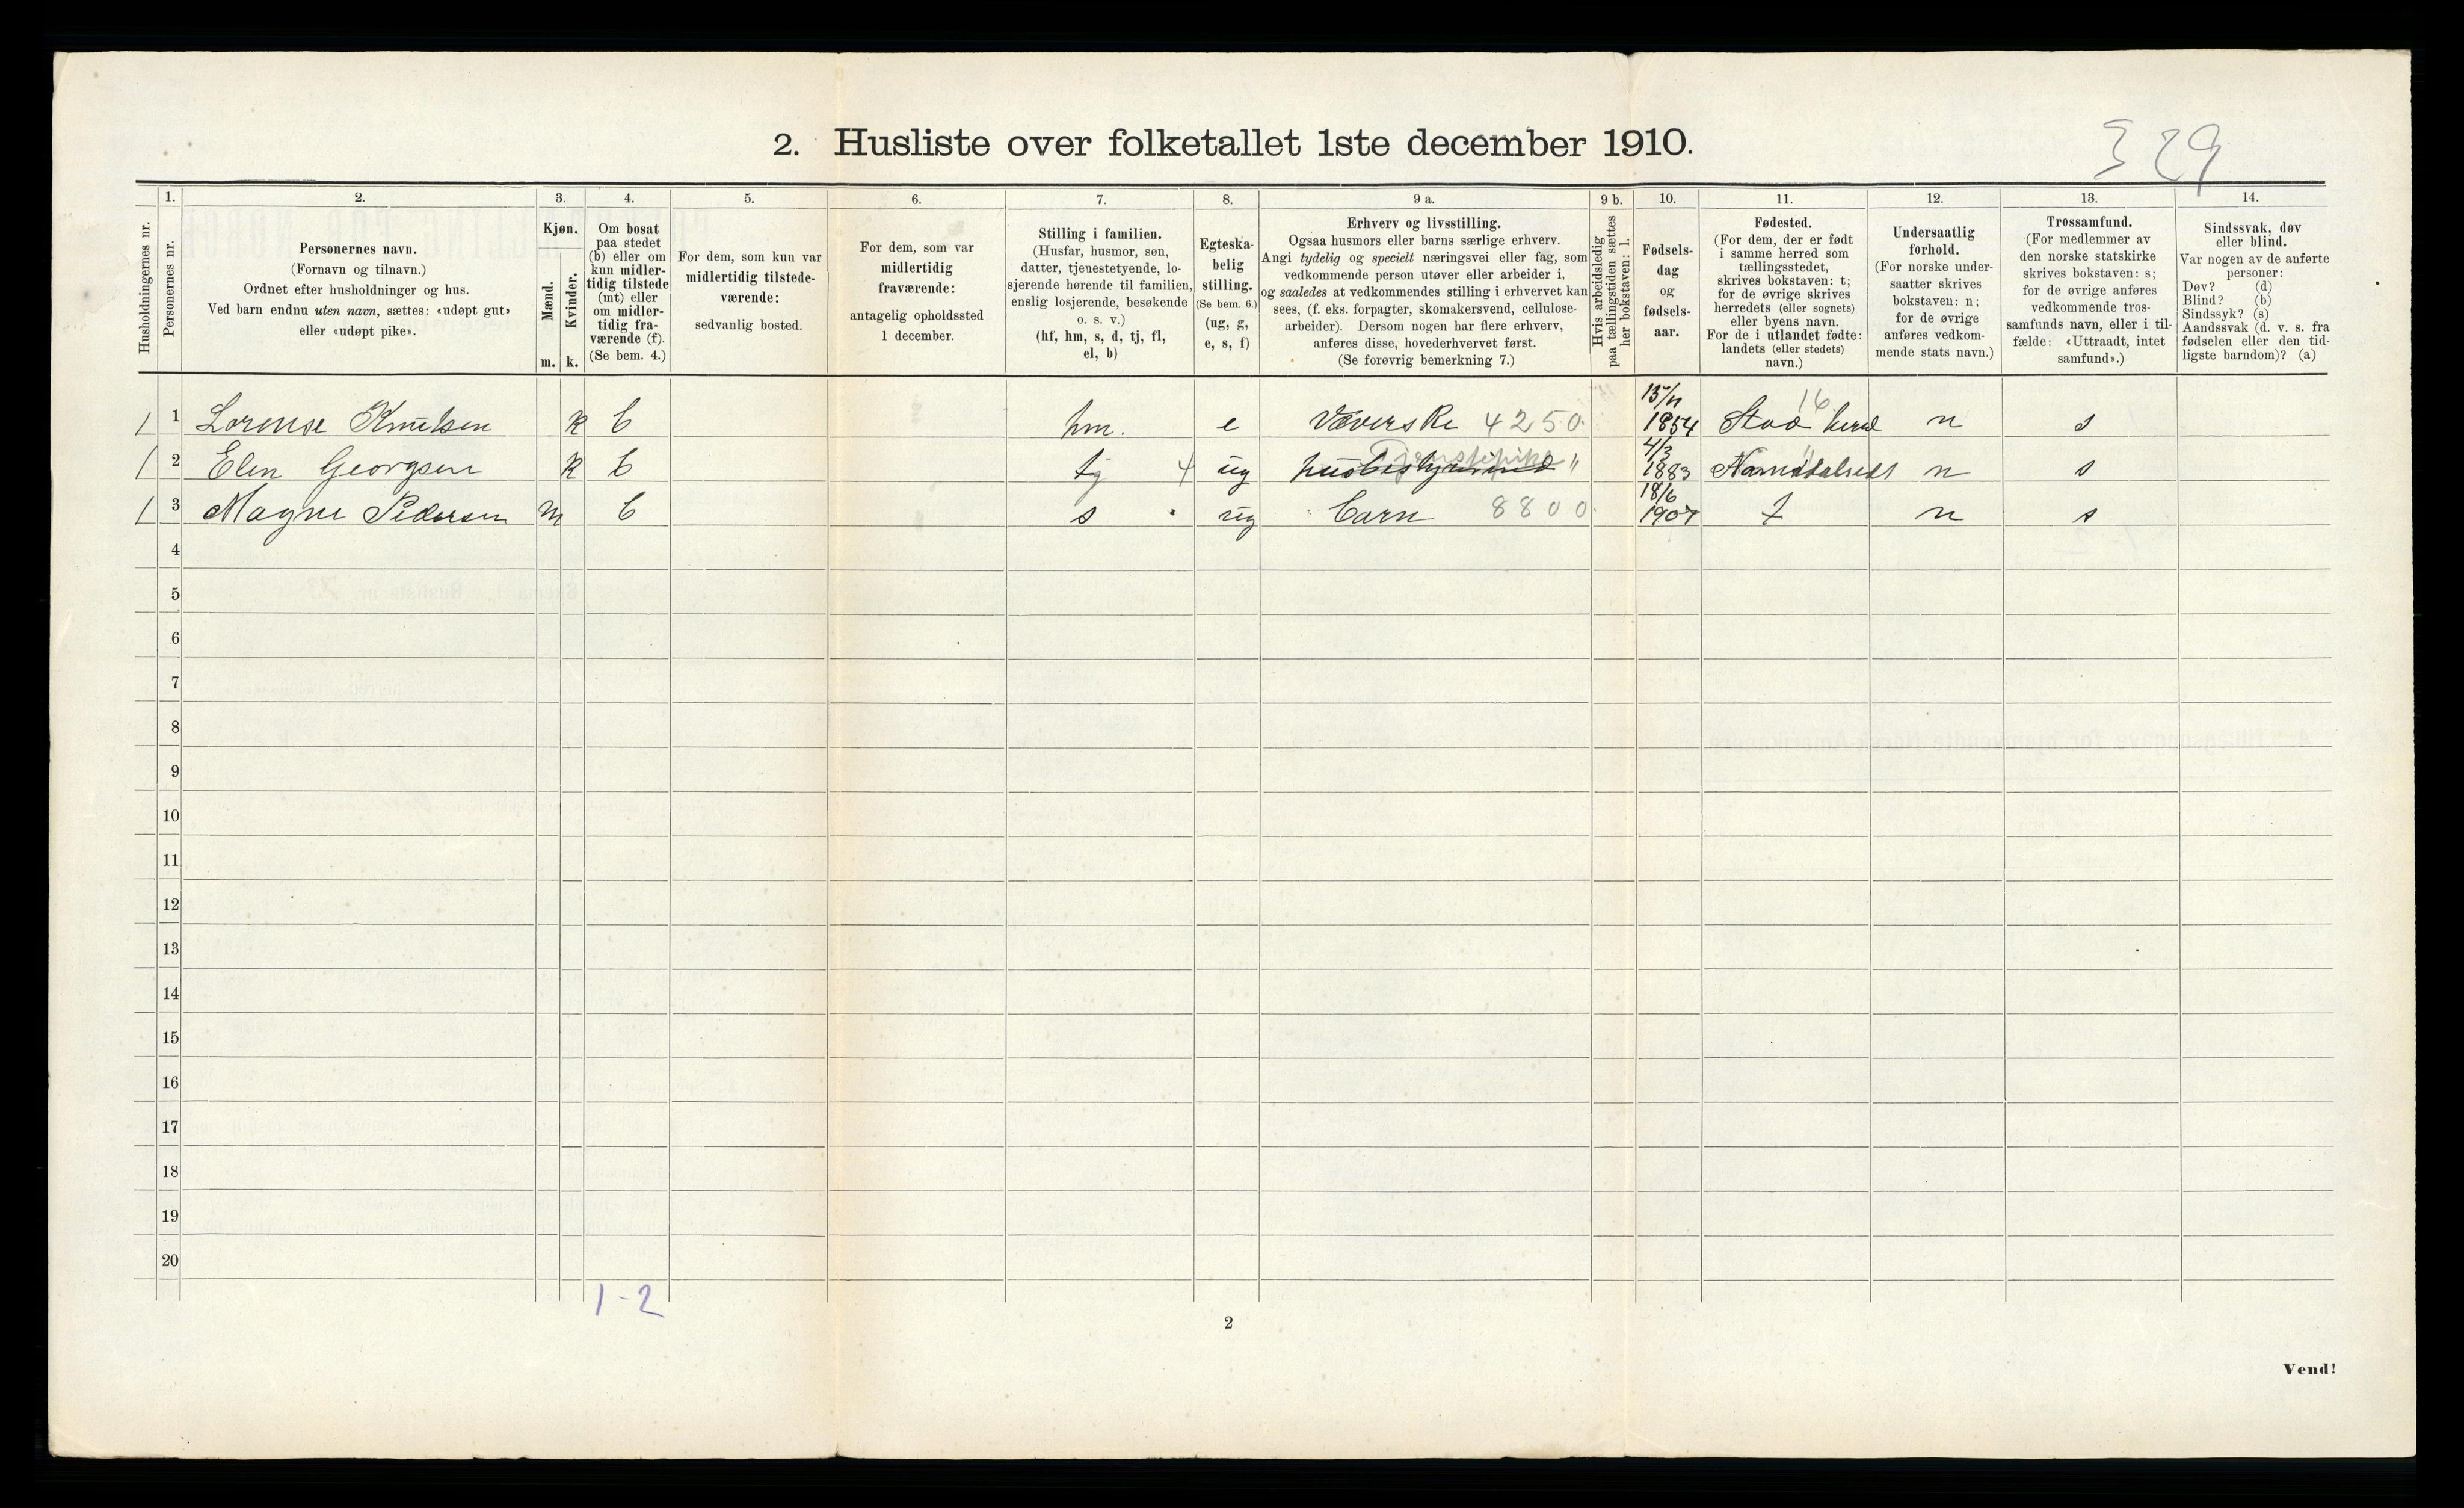 329
2. Husliste over folketallet 1ste december 1910.
Husholdningernes nr.
1.
Personernes nr.
2.
Personernes navn.
(Fornavn og tilnavn.)
Ordnet efter husholdninger og hus.
Ved barn endnu uten navn, sættes: «udøpt gut»
eller «udøpt pike».
3.
Kjøn.
Mænd.
Kvinder.
m. k.
4.
Om bosat
paa stedet
(b) eller om
kun midler-
tidig tilstede
(mt) eller
om midler-
tidig fra-
værende (f).
(Se bem. 4.)
5.
For dem, som kun var
midlertidig tilstede-
værende:
sedvanlig bosted.
6.
For dem, som var
midlertidig
fraværende:
antagelig opholdssted
1 december.
7.
Stilling i familien.
(Husfar, husmor, søn,
datter, tjenestetyende, lo-
sjerende hørende til familien,
enslig losjerende, besøkende
o. s. v.)
(hf, hm, s, d, tj, fl,
el, b)
8.
Egteska-
belig
stilling.
(Se bem. 6.)
(ug, g,
e, s, f)
9 a.
Erhverv og livsstilling.
Ogsaa husmors eller barns særlige erhverv.
Angi tydelig og specielt næringsvei eller fag, som
vedkommende person utøver eller arbeider i,
og saaledes at vedkommendes stilling i erhvervet kan
sees, (f. eks. forpagter, skomakersvend, cellulose-
arbeider). Dersom nogen har flere erhverv,
anføres disse, hovederhvervet først.
(Se forøvrig bemerkning 7.)
9 b.
Hvis arbeidsledig
paa tællingstiden sættes
her bokstaven: l.
10.
Fødsels-
dag
og
fødsels-
aar.
11.
Fødested.
(For dem, der er født
i samme herred som
tællingsstedet,
skrives bokstaven: t;
for de øvrige skrives
herredets (eller sognets)
eller byens navn.
For de i utlandet fødte:
landets (eller stedets)
navn.)
12.
Undersaatlig
forhold.
(For norske under-
saatter skrives
bokstaven: n;
for de øvrige
anføres vedkom-
mende stats navn.)
13.
Trossamfund.
(For medlemmer av
den norske statskirke
skrives bokstaven: s;
for de øvrige anføres
vedkommende tros-
samfunds navn, eller i til-
fælde: «Uttraadt, intet
samfund».)
14.
Sindssvak, døv
eller blind.
Var nogen av de anførte
personer:
Døv? (d)
Blind? (b)
Sindssyk? (s)
Aandssvak (d. v. s. fra
fødselen eller den tid-
ligste barndom)? (a)
1 1 Lorense Knutsen k b hm. e Væverske 4250. 15/11 1854 Stod herred 16 n s
1 2 Elen Georgsen k b tj 4 ug husbestyrerinde Tjenestepike " 4/3 1883 Namdalseidet " n s
1 3 Magne Pedersen m b s ug barn 8800. 18/6 1907 t n s
4
5
6
7
8
9
10
11
12
13
14
15
16
17
18
19
20
1-2
2
Vend!